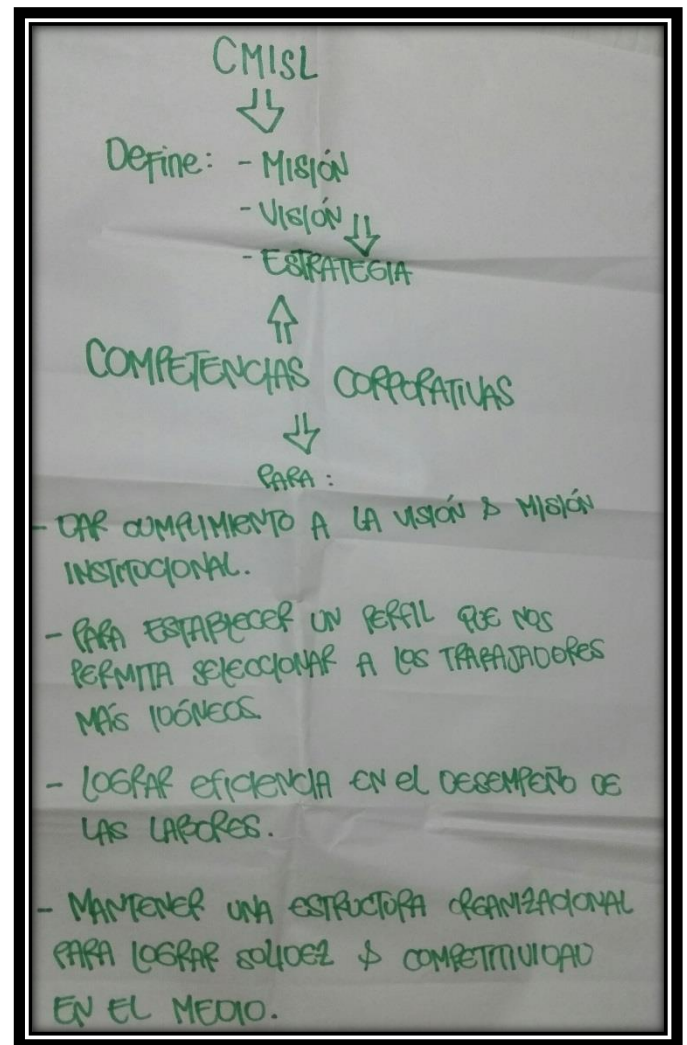 CMISL
⇓
Define: - MISIÓN
- VISIÓN ⇓
- ESTRATEGIA
⇑
COMPETENCIAS CORPORATIVAS
⇓
PARA:
- DAR CUMPLIMIENTO A LA VISIÓN & MISIÓN
INSTITUCIONAL.
- PARA ESTABLECER UN PERFIL QUE NOS
PERMITA SELECCIONAR A LOS TRABAJADORES
MÁS IDÓNEOS.
- LOGRAR EFICIENCIA EN EL DESEMPEÑO DE
LAS LABORES.
- MANTENER UNA ESTRUCTURA ORGANIZACIONAL
PARA LOGRAR SOLIDEZ & COMPETITIVIDAD
EN EL MEDIO.